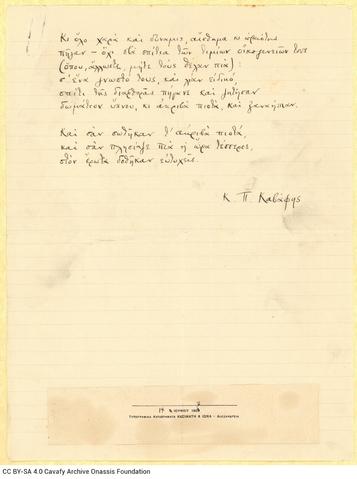 Κι όλο χαρά και δύναμις, αίσθημα κι ωραιότης
πήγαν – όχι στα σπίτια των τιμίων οικογενειών τους
(όπου, άλλωστε, μήτε τους θέλαν πια):
σ' ένα γνωστό τους, και λίαν ειδικό,
σπίτι της διαφθοράς πήγανε και ζητήσαν
δωμάτιον ύπνου, κι ακριβά πιοτά, και ξαναήπιαν.
Και σαν σωθήκαν τ' ακριβά πιοτά,
και σαν πλησίαζε πια η ώρα τέσσερες,
στον έρωτα δοθήκαν ευτυχείς.
Κ. Π. Καβάφης
ΤΥΠΟΓΡΑΦΙΚΑ ΚΑΤΑΣΤΗΜΑΤΑ ΚΑΣΙΜΑΤΗ & ΙΩΝΑ – ΑΛΕΞΑΝΔΡΕΙΑ
CC BY-SA 4.0 Cavafy Archive Onassis Foundation